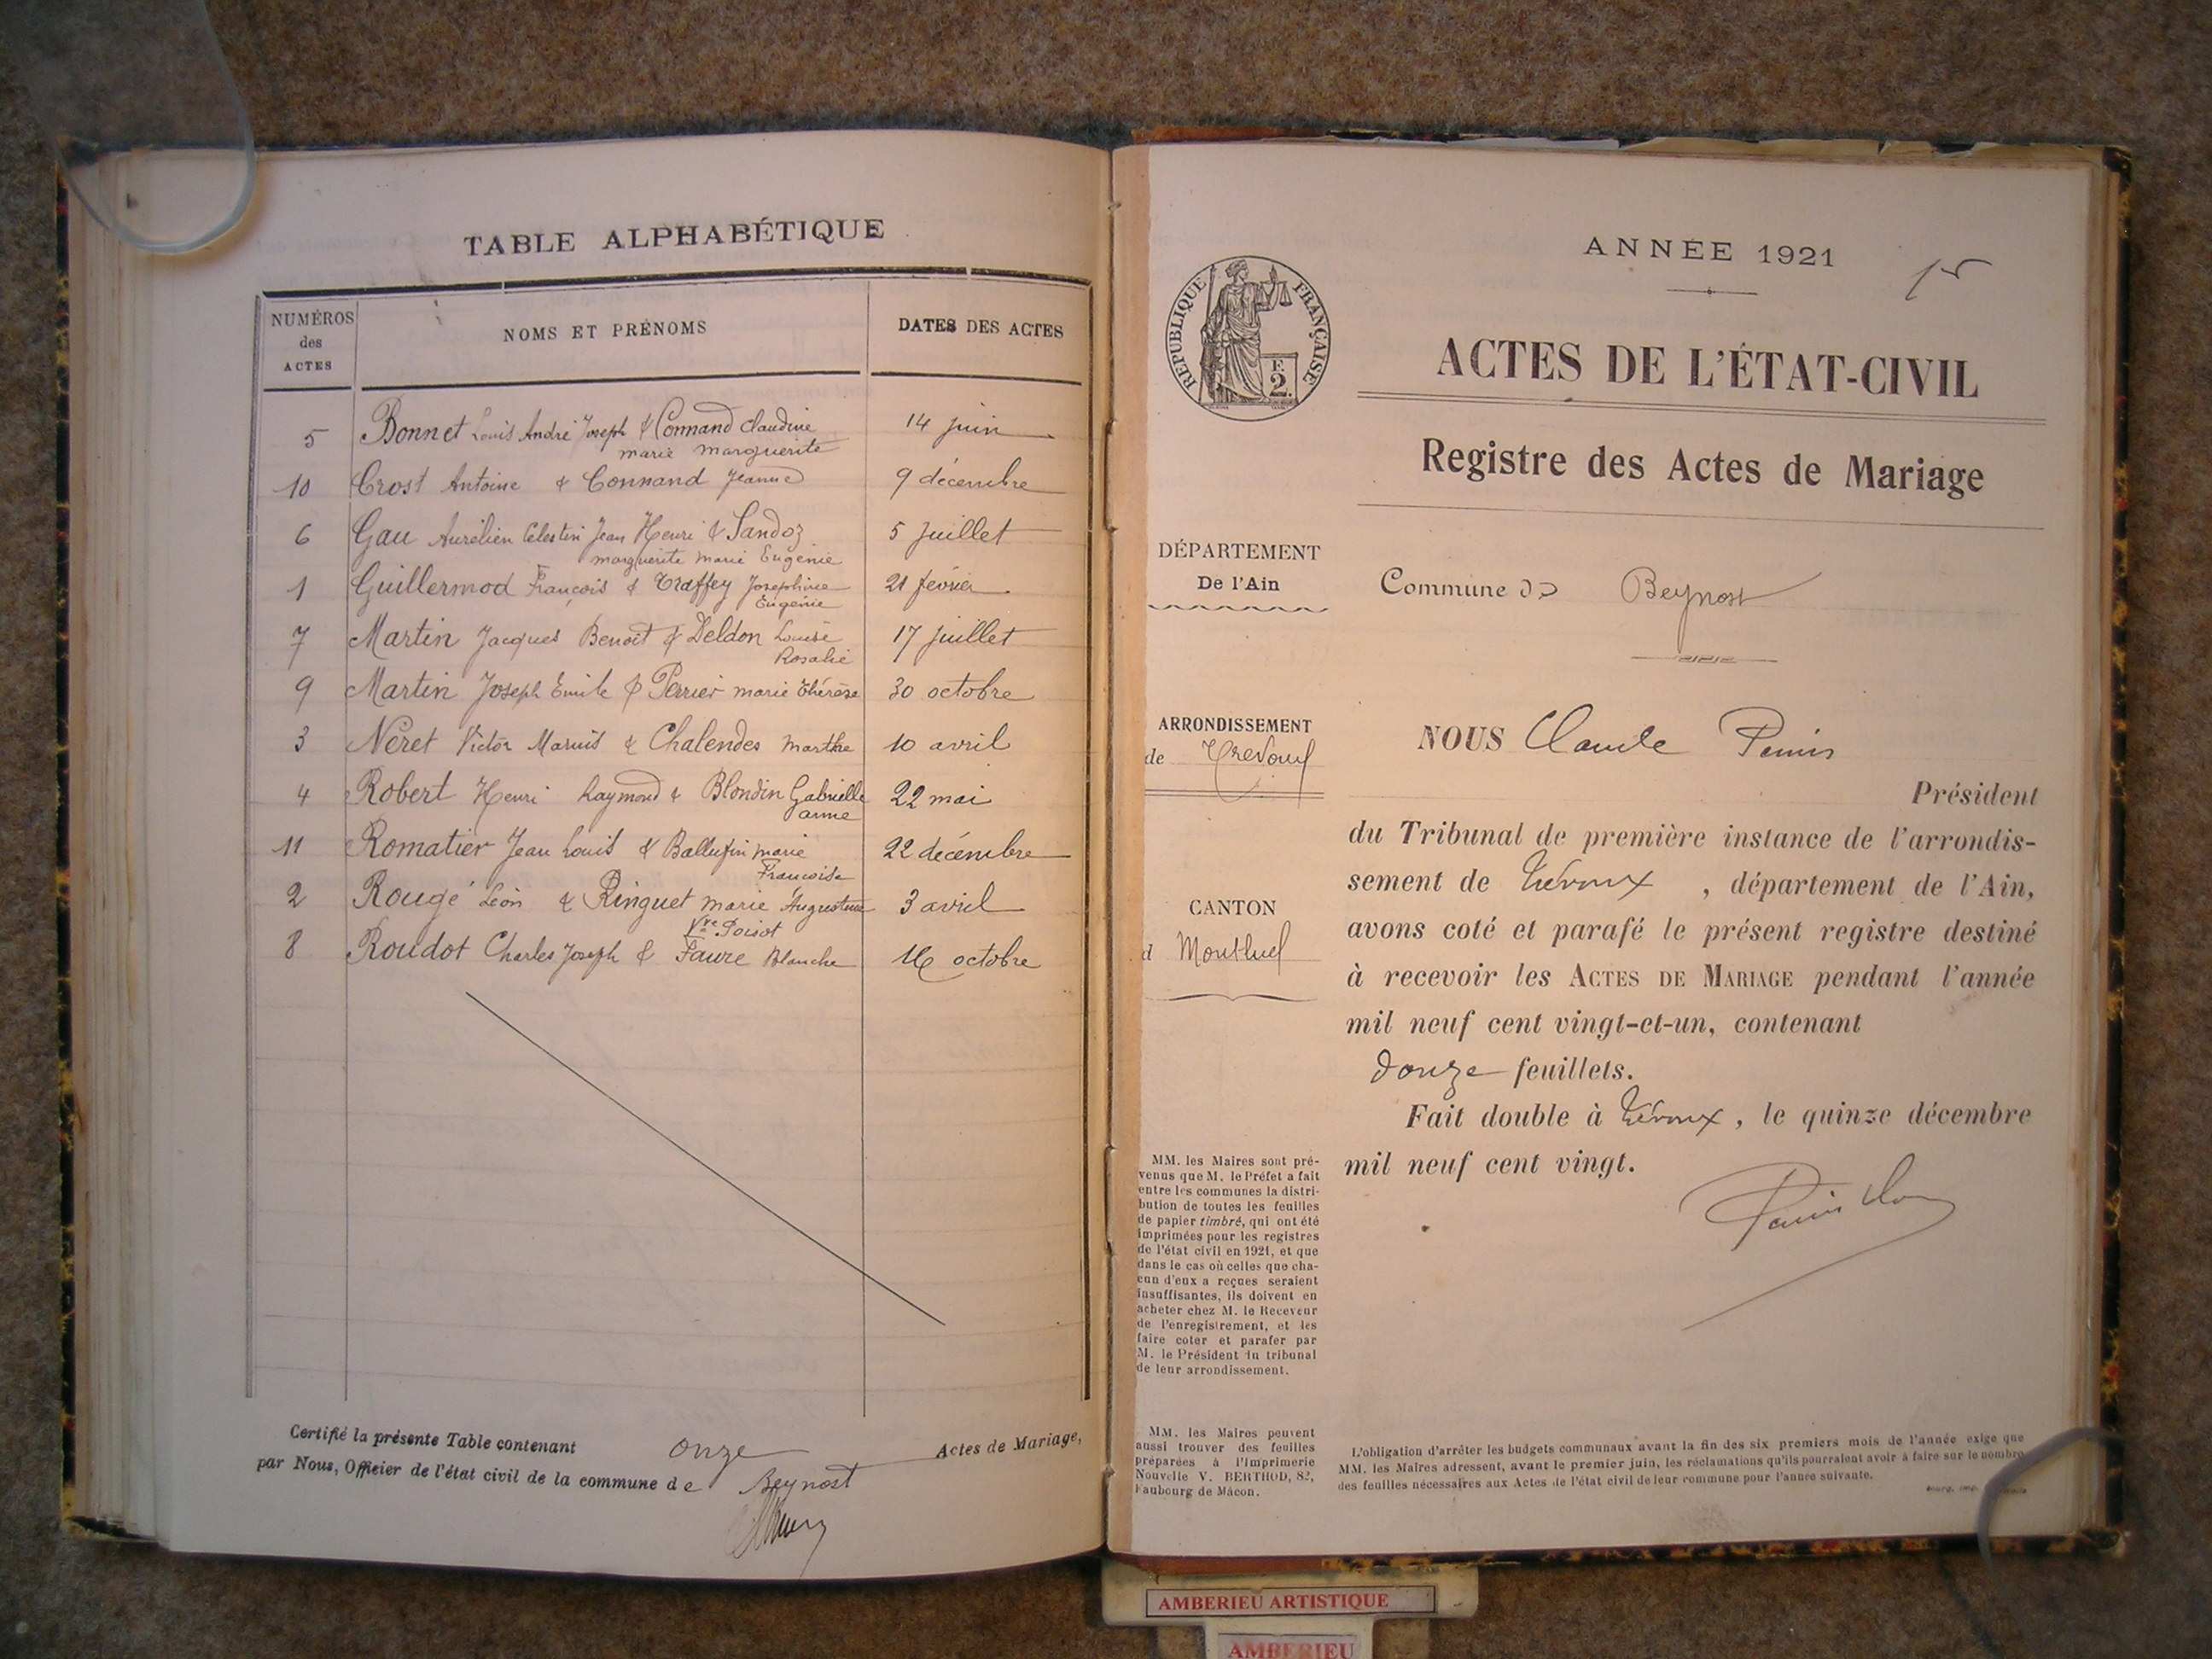 TABLE ALPHABÉTIQUE
NUMÉROS
des
ACTES
NOMS ET PRÉNOMS
DATES DES ACTES
5 Bonnet Louis André Joseph & Connand Claudine 14 juin
marie marguerite
10 Crost Antoine & Connand Jeanne 9 décembre
6 Gau Aurélien Célestin Jean Henri & Sandoz 5 Juillet
marguerite marie Eugénie
1 Guillermod François & Traffey Joséphine 21 février
Eugénie
7 Martin Jacques Benoît & Deldon Louise 17 juillet
Rosalie
9 Martin Joseph Emile & Perrier marie thérèse 30 octobre
3 Néret Victor Marius & Chalendes Marthe 10 avril
4 Robert Henri Raymond & Blondin Gabrielle 22 mai
anne
11 Romatier Jean Louis & Ballufin marie 22 décembre
Francoise
2 Rougé Léon & Ringuet marie Augustine 3 avril
Vve Poisot
8 Roudot Charles Joseph & Faure Blanche 16 octobre
Certifié la présente Table contenant onze Actes de Mariage,
par Nous, Officier de l'état civil de la commune de Beynost
ANNÉE 1921
15
RÉPUBLIQUE FRANÇAISE
F.
2.
ACTES DE L'ÉTAT-CIVIL
Registre des Actes de Mariage
DÉPARTEMENT
De l'Ain
Commune de Beynost
ARRONDISSEMENT
de Trévoux
CANTON
d Montluel
NOUS Claude
Président
du Tribunal de première instance de l'arrondis-
sement de Trévoux , département de l'Ain,
avons coté et parafé le présent registre destiné
à recevoir les ACTES DE MARIAGE pendant l'année
mil neuf cent vingt-et-un, contenant
douze feuillets.
Fait double à Trévoux, le quinze décembre
mil neuf cent vingt.
MM. les Maires sont pré-
venus que M. le Préfet a fait
entre les communes la distri-
bution de toutes les feuilles
de papier timbré, qui ont été
imprimées pour les registres
de l'état civil en 1921, et que
dans le cas où celles que cha-
cun d'eux a reçues seraient
insuffisantes, ils doivent en
acheter chez M. le Receveur
de l'enregistrement, et les
faire coter et parafer par
M. le Président du tribunal
de leur arrondissement.
MM. les Maires peuvent
aussi trouver des feuilles
préparées à l'Imprimerie
Nouvelle V. BERTHOD, 82,
Faubourg de Mâcon.
L'obligation d'arrêter les budgets communaux avant la fin des six premiers mois de l'année exige que
MM. les Maires adressent, avant le premier juin, les réclamations qu'ils pourraient avoir à faire sur le nombre
des feuilles nécessaires aux Actes de l'état civil de leur commune pour l'année suivante.
AMBERIEU ARTISTIQUE
AMBERIEU